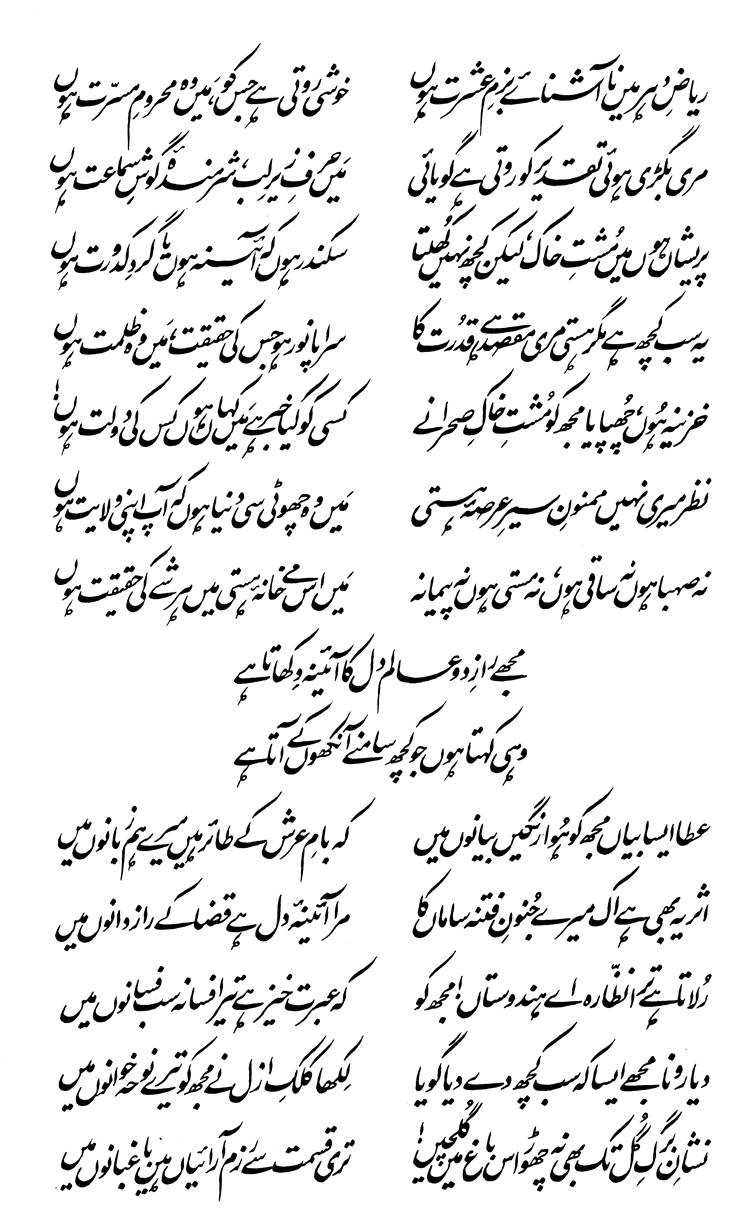 ریاضِ دہر میں ناآشنائے بزمِ عشرت ہوں خوشی روتی ہے جس کو، مَیں وہ محرومِ مسرّت ہوں
مری بگڑی ہوئی تقدیر کو روتی ہے گویائی مَیں حرفِ زیرِ لب، شرمندۂ گوشِ سماعت ہوں
پریشاں ہوں میں مُشتِ خاک، لیکن کچھ نہیں کھُلتا سکندر ہوں کہ آئینہ ہوں یا گردِ کدورت ہوں
یہ سب کچھ ہے مگر ہستی مری مقصد ہے قُدرت کا سراپا نور ہو جس کی حقیقت، مَیں وہ ظلمت ہوں
خزینہ ہُوں، چھُپایا مجھ کو مُشتِ خاکِ صحرا نے کسی کو کیا خبر ہے مَیں کہاں ہوں کس کی دولت ہوں!
نظر میری نہیں ممنونِ سیرِ عرصۂ ہستی مَیں وہ چھوٹی سی دنیا ہوں کہ آپ اپنی ولایت ہوں
نہ صہبا ہوں نہ ساقی ہوں، نہ مستی ہوں نہ پیمانہ مَیں اس مے خانۂ ہستی میں ہر شے کی حقیقت ہوں
مجھے رازِ دو عالم دل کا آئینہ دِکھاتا ہے
وہی کہتا ہوں جو کچھ سامنے آنکھوں کے آتا ہے
عطا ایسا بیاں مجھ کو ہُوا رنگیں بیانوں میں کہ بامِ عرش کے طائر ہیں میرے ہم زبانوں میں
اثر یہ بھی ہے اک میرے جُنونِ فتنہ ساماں کا مرا آئینۂ دل ہے قضا کے رازدانوں میں
رُلاتا ہے ترا نظّارہ اے ہندوستاں! مجھ کو کہ عبرت خیز ہے تیرا فسانہ سب فسانوں میں
دیا رونا مجھے ایسا کہ سب کچھ دے دیا گویا لِکھا کلکِ ازل نے مجھ کو تیرے نوحہ خوانوں میں
نشانِ برگِ گُل تک بھی نہ چھوڑ اس باغ میں گُلچیں! تری قسمت سے رزم آرائیاں ہیں باغبانوں میں